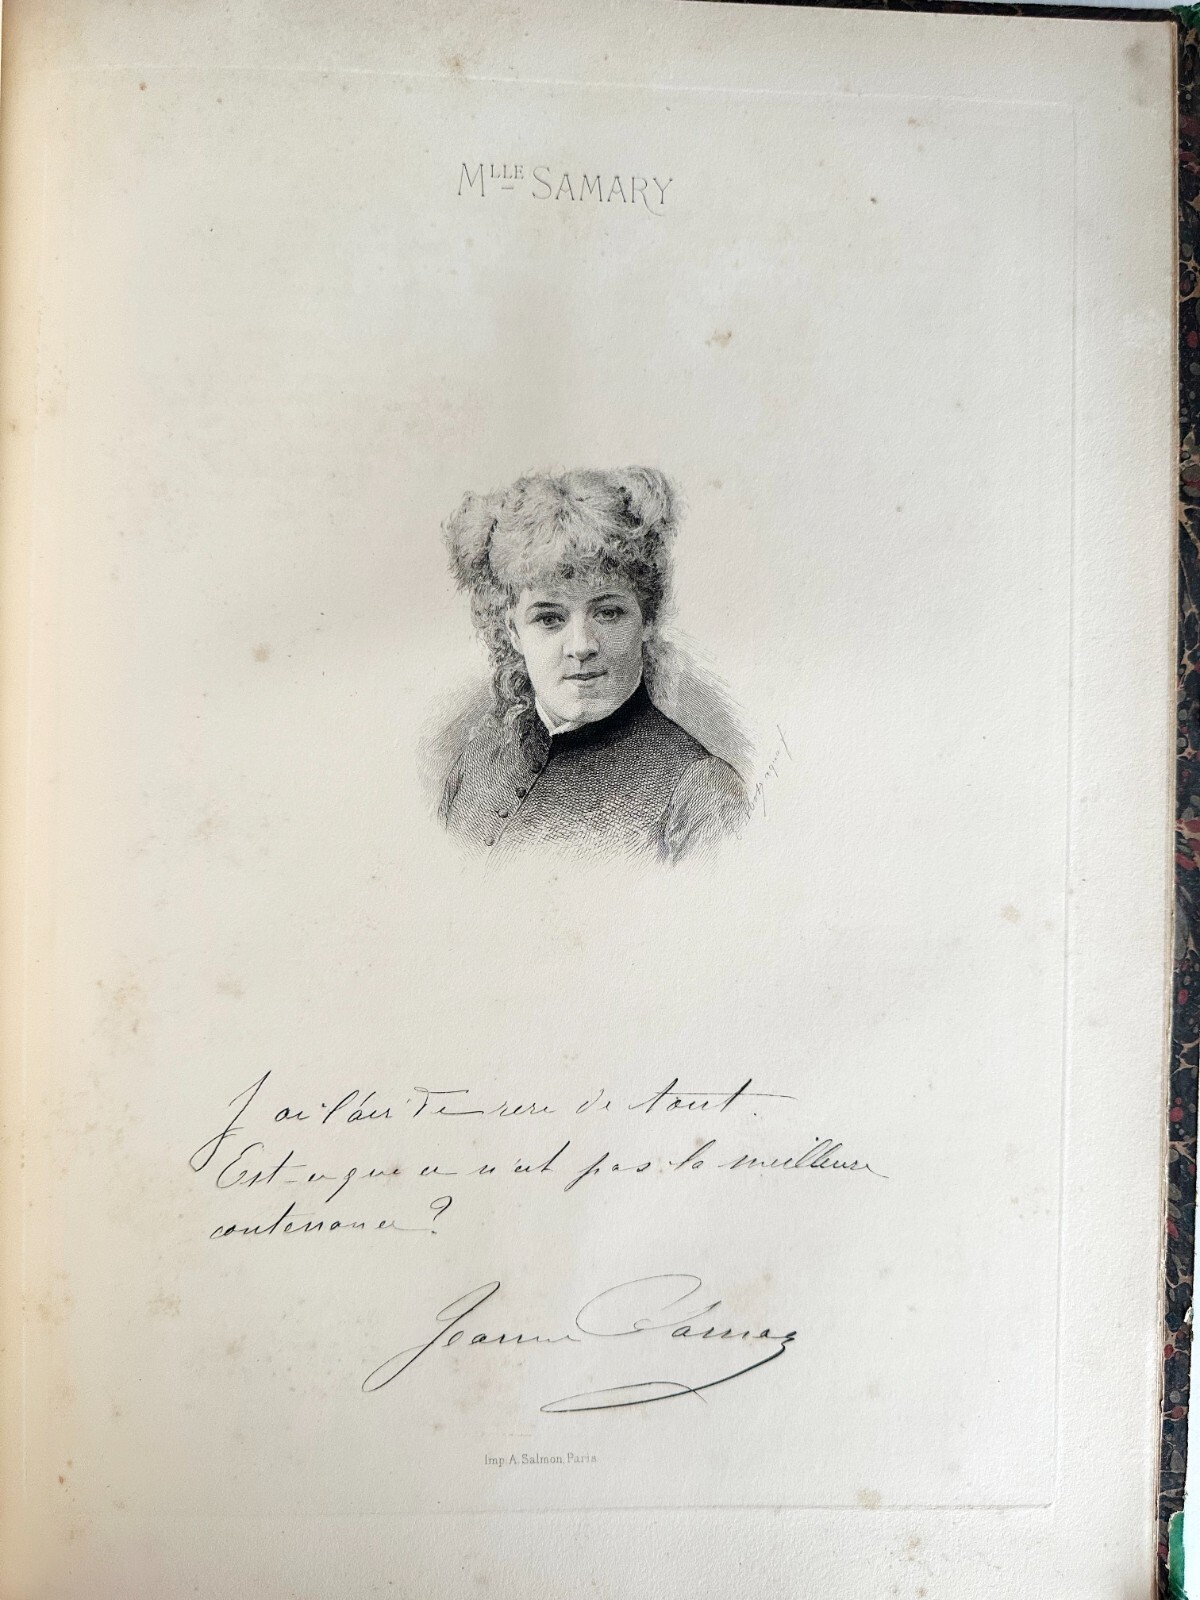 MLLE SAMARY
J'ai l'air de rire de tout.
Est-ce que ce n'est pas la meilleure
contenance?
Jeanne Samary
Imp. A. Salmon, Paris